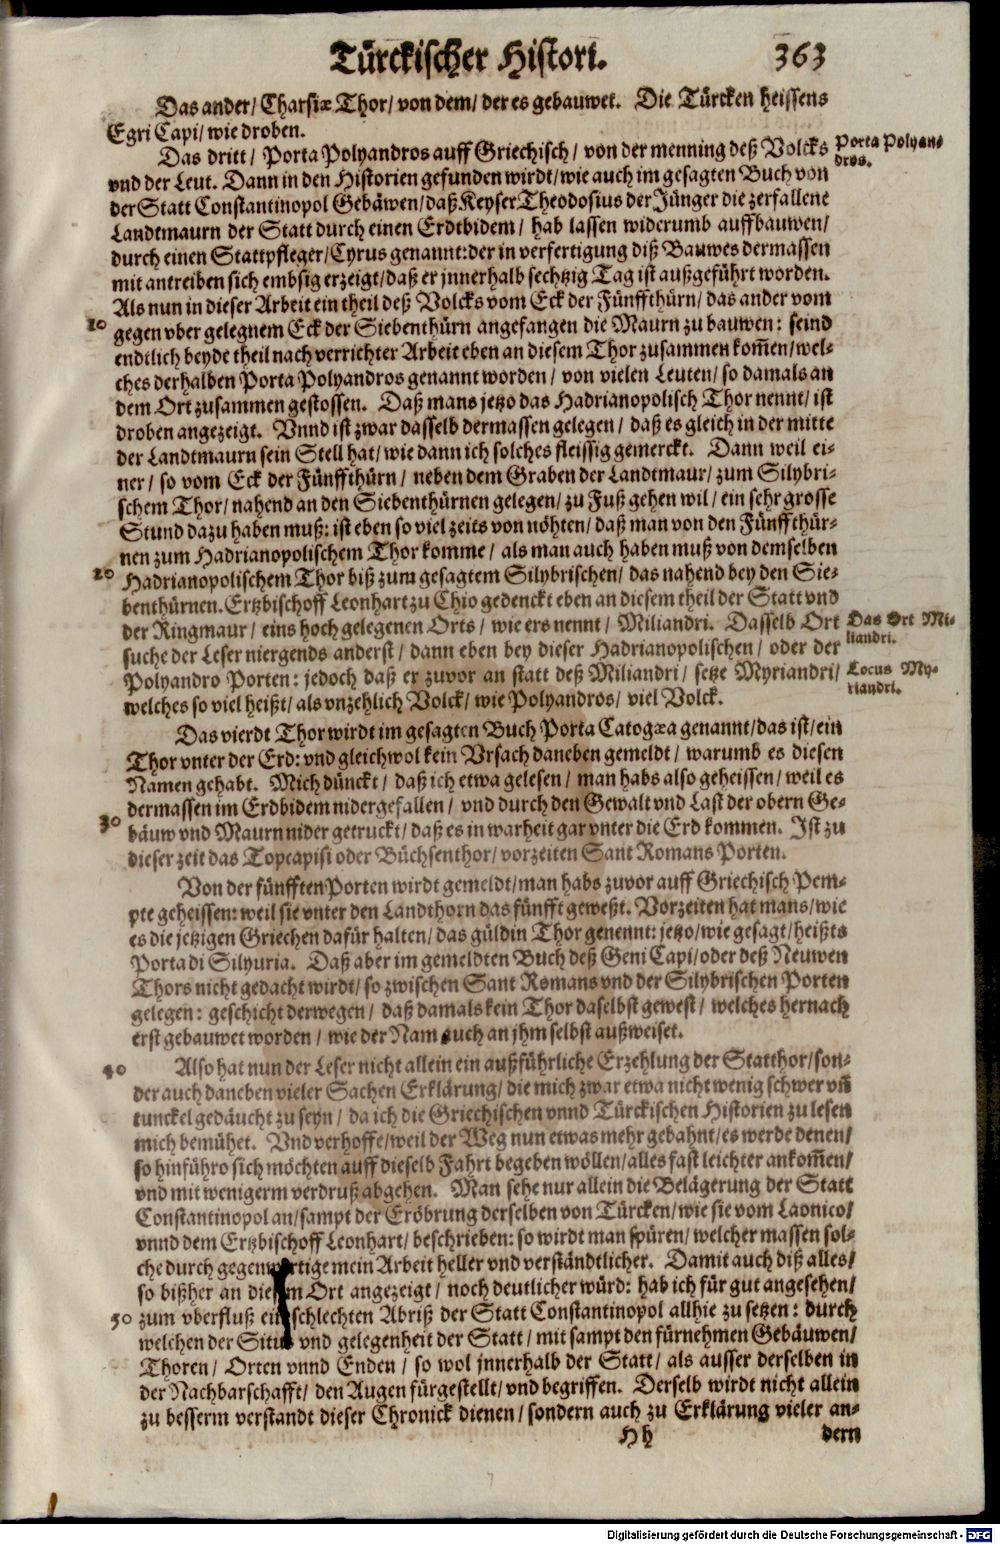 Türckischer Histori. 363
Das ander/ Charsiæ Thor/ von dem/ der es gebauwet. Die Türcken heissens
Egri Capi/ wie droben.
Das dritt/ Porta Polyandros auff Griechisch/ von der menning deß Volcks
Porta Polyan-
dros.
vnd der Leut. Dann in den Historien gefunden wirdt/ wie auch im gesagten Buch von
der Statt Constantinopol Gebäwen/ daß Keyser Theodosius der Jünger die zerfallene
Landtmaurn der Statt durch einen Erdtbidem/ hab lassen widerumb auffbauwen/
durch einen Stattpfleger/ Cyrus genannt: der in verfertigung diß Bauwes dermassen
mit antreiben sich embsig erzeigt/ daß er jnnerhalb sechtzig Tag ist außgeführt worden.
Als nun in dieser Arbeit ein theil deß Volcks vom Eck der Fünffthürn/ das ander vom
10 gegen vber gelegnem Eck der Siebenthürn angefangen die Maurn zu bauwen: seind
endtlich beyde theil nach verrichter Arbeit eben an diesem Thor zusammen kom̃en/ wel-
ches derhalben Porta Polyandros genannt worden/ von vielen Leuten/ so damals an
dem Ort zusammen gestossen. Daß mans jetzo das Hadrianopolisch Thor nennt/ ist
droben angezeigt. Vnnd ist zwar dasselb dermassen gelegen/ daß es gleich in der mitte
der Landtmaurn sein Stell hat/ wie dann ich solches fleissig gemerckt. Dann weil ei-
ner/ so vom Eck der Fünffthürn/ neben dem Graben der Landtmaur/ zum Silybri-
schem Thor/ nahend an den Siebenthürnen gelegen/ zu Fuß gehen wil/ ein sehr grosse
Stund dazu haben muß: ist eben so viel zeits von nöhten/ daß man von den Fünffthür-
nen zum Hadrianopolischem Thor komme/ als man auch haben muß von demselben
20 Hadrianopolischem Thor biß zum gesagtem Silybrischen/ das nahend bey den Sie-
benthürnen. Ertzbischoff Leonhart zu Chio gedenckt eben an diesem theil der Statt vnd
der Ringmaur/ eins hoch gelegenen Orts/ wie ers nennt/ Miliandri. Dasselb Ort
Das Ort Mi-
liandri.
suche der Leser niergends anderst/ dann eben bey dieser Hadrianopolischen/ oder der
Polyandro Porten: jedoch daß er zuvor an statt deß Miliandri/ setze Myriandri/
Locus My-
riandri.
welches so viel heißt/ als vnzehlich Volck/ wie Polyandros/ viel Volck.
Das vierdt Thor wirdt im gesagten Buch Porta Catogæa genannt/ das ist/ ein
Thor vnter der Erd: vnd gleichwol kein Vrsach daneben gemeldt/ warumb es diesen
Namen gehabt. Mich dünckt/ daß ich etwa gelesen/ man habs also geheissen/ weil es
dermassen im Erdbidem nidergefallen/ vnd durch den Gewalt vnd Last der obern Ge-
30 bäuw vnd Maurn nider getruckt/ daß es in warheit gar vnter die Erd kommen. Ist zu
dieser zeit das Topcapisi oder Büchsenthor/ vorzeiten Sant Romans Porten.
Von der fünfften Porten wirdt gemeldt/ man habs zuvor auff Griechisch Pem-
pte geheissen: weil sie vnter den Landthorn das fünfft geweßt. Vorzeiten hat mans/ wie
es die jetzigen Griechen dafür halten/ das güldin Thor genennt: jetzo/ wie gesagt/ heißts
Porta di Silyuria. Daß aber im gemeldten Buch deß Geni Capi/ oder deß Neuwen
Thors nicht gedacht wirdt/ so zwischen Sant Romans vnd der Silybrischen Porten
gelegen: geschicht derwegen/ daß damals kein Thor daselbst gewest/ welches hernach
erst gebauwet worden/ wie der Nam auch an jhm selbst außweiset.
40 Also hat nun der Leser nicht allein ein außführliche Erzehlung der Statthor/ son-
der auch daneben vieler Sachen Erklärung/ die mich zwar etwa nicht wenig schwer vn̄
tunckel gedäucht zu seyn/ da ich die Griechischen vnnd Türckischen Historien zu lesen
mich bemühet. Vnd verhoffe/ weil der Weg nun etwas mehr gebahnt/ es werde denen/
so hinführo sich möchten auff dieselb Fahrt begeben wöllen/ alles fast leichter ankom̃en/
vnd mit wenigerm verdruß abgehen. Man sehe nur allein die Belägerung der Statt
Constantinopol an/ sampt der Eröbrung derselben von Türcken/ wie sie vom Laonico/
vnnd dem Ertzbischoff Leonhart/ beschrieben: so wirdt man spüren/ welcher massen sol-
che durch gegenwertige mein Arbeit heller vnd verständtlicher. Damit auch diß alles/
so bißher an diesem Ort angezeigt/ noch deutlicher würd: hab ich für gut angesehen/
50 zum vberfluß ein schlechten Abriß der Statt Constantinopol allhie zu setzen: durch
welchen der Situs vnd gelegenheit der Statt/ mit sampt den fürnehmen Gebäuwen/
Thoren/ Orten vnnd Enden/ so wol jnnerhalb der Statt/ als ausser derselben in
der Nachbarschafft/ den Augen fürgestellt/ vnd begriffen. Derselb wirdt nicht allein
zu besserm verstandt dieser Chronick dienen/ sondern auch zu Erklärung vieler an-
Hh dern
Digitalisierung gefördert durch die Deutsche Forschungsgemeinschaft - DFG